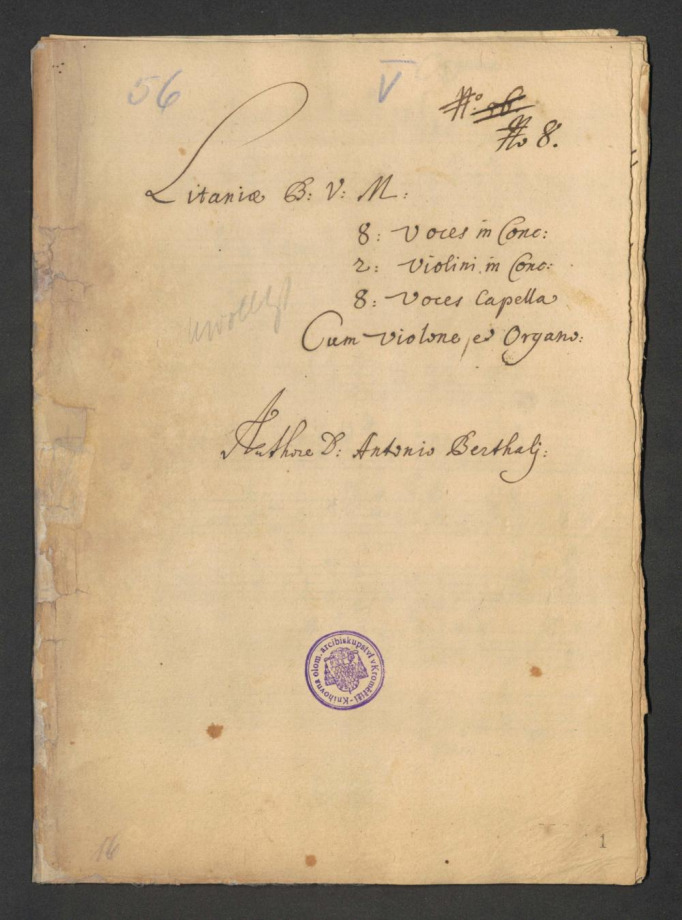 56
V
No 8.
Litaniæ B: V: M:
8: Voces in Conc:
2: Violini in Conc:
8: Voces Capella
Cum Violone, et Organo:
Authore D: Antonio Berthalj:
Knihovna olom. arcibiskupství v Kroměříži
1